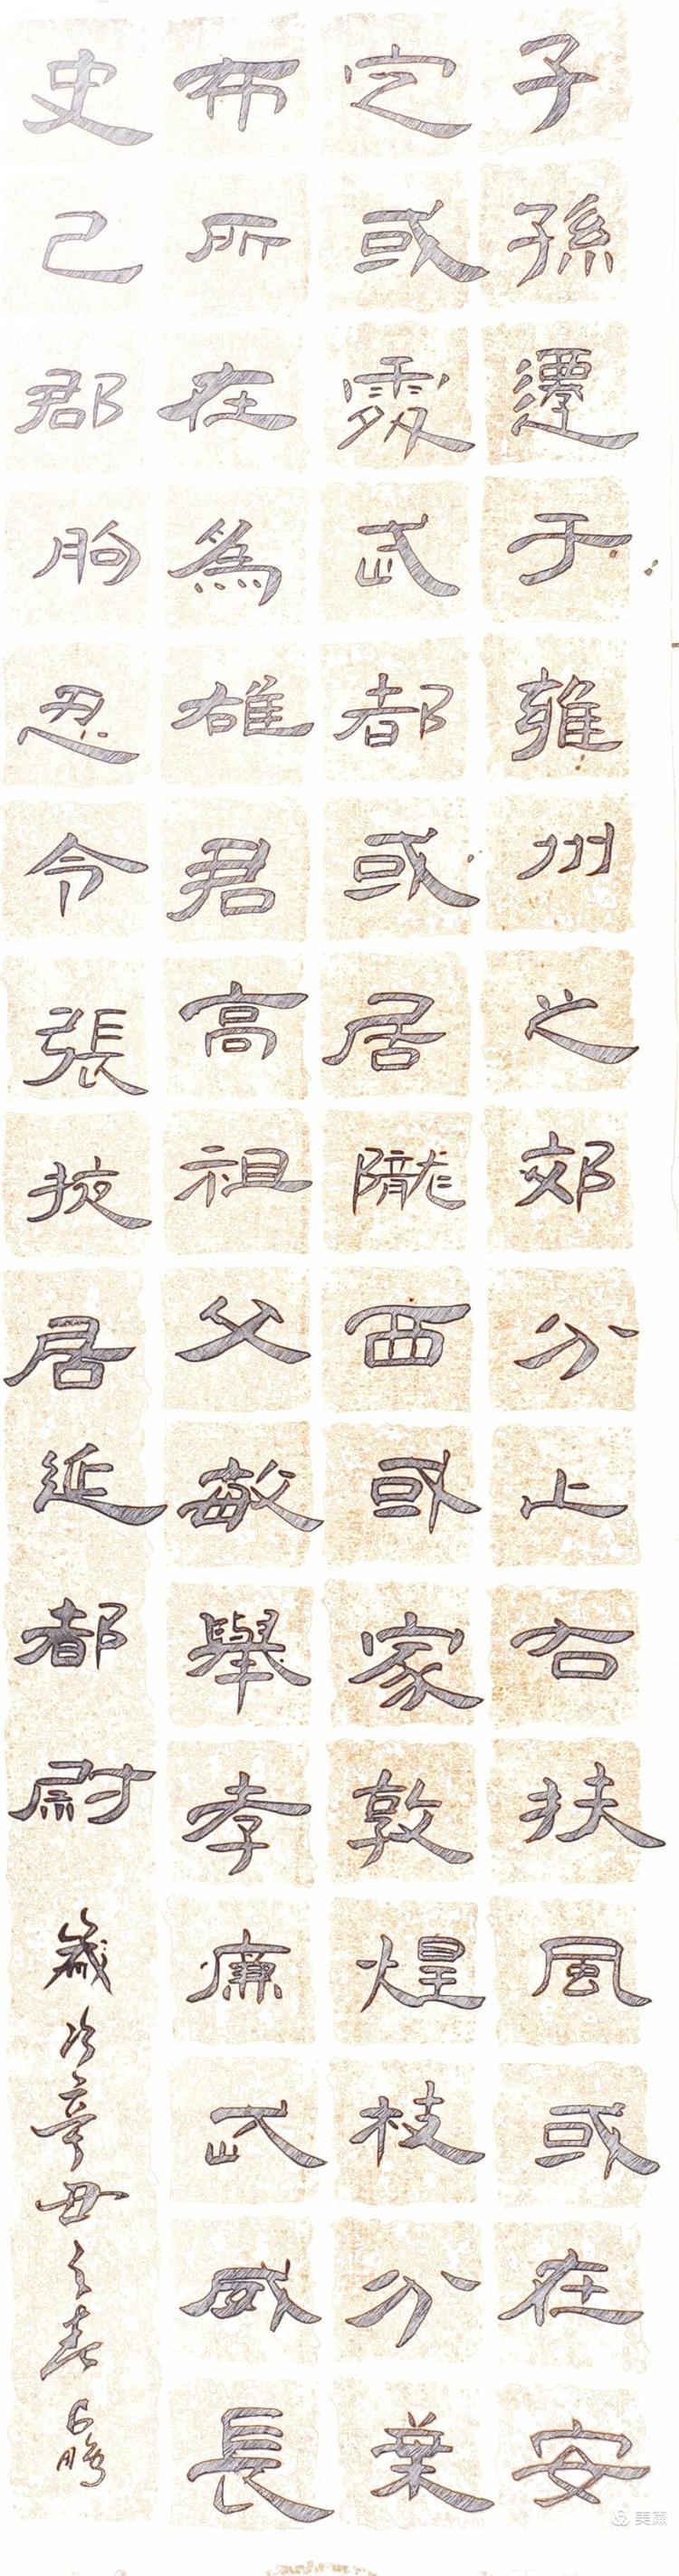 子孫遷于雍州之郊分止右扶風或在安
定或處武都或居隴西或家敦煌枝分葉
布所在為雄君高祖父敏舉孝廉武威長
史巴郡朐忍令張掖居延都尉
歲次辛丑之春
美篇